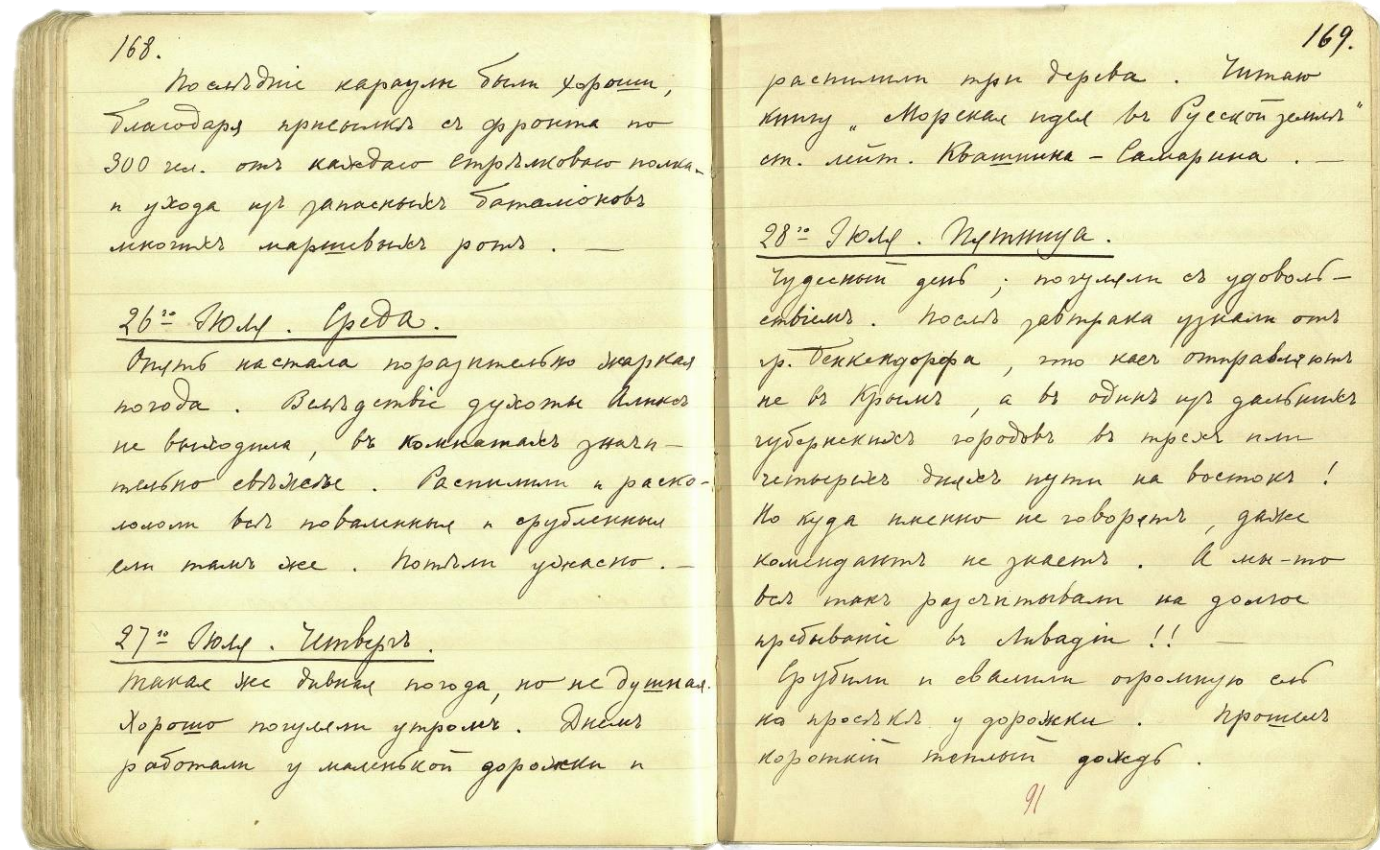 168.
Послѣдніе караулы были хороши,
благодаря присылкѣ съ фронта по
300 чел. отъ каждаго стрѣлковаго полка
и ухода изъ запасныхъ баталіоновъ
многихъ маршевыхъ ротъ. —
26го Іюля. Среда.
Опять настала поразительно жаркая
погода. Вслѣдствіе духоты Аликсъ
не выходила, въ комнатахъ значи-
тельно свѣжѣе. Распилили и раско-
лоли всѣ поваленныя и срубленныя
ели тамъ же. Потѣли ужасно. —
27го Іюля. Четвергъ.
Такая же дивная погода, но не душная.
Хорошо погуляли утромъ. Днемъ
работали у маленькой дорожки и
169.
распилили три дерева. Читаю
книгу „Морская идея въ Русской землѣ"
ст. лейт. Квашнина-Самарина. —
28го Іюля. Пятница.
Чудесный день; погуляли съ удоволь-
ствіемъ. Послѣ завтрака узнали отъ
гр. Бенкендорфа, что насъ отправляютъ
не въ Крымъ, а въ одинъ изъ дальнихъ
губернскихъ городовъ въ трехъ или
четырехъ дняхъ пути на востокъ!
Но куда именно не говорятъ, даже
комендантъ не знаетъ. А мы-то
всѣ такъ разсчитывали на долгое
пребываніе въ Ливадіи!! —
Срубили и свалили огромную ель
на просѣкѣ у дорожки. Прошелъ
короткій теплый дождь.
91